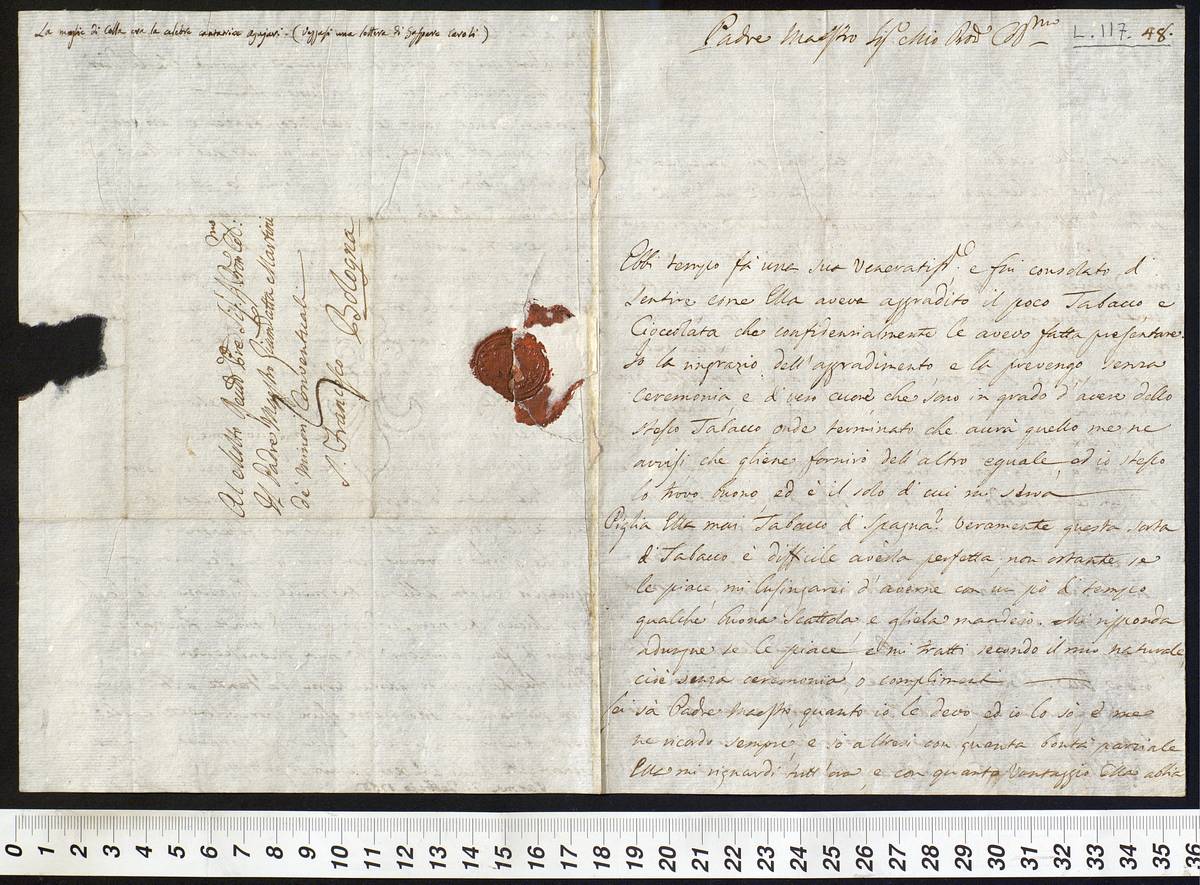 La moglie di Colla era la celebre cantarice Agujari - (Veggasi una lettera di Gaspare Caroli)
Al Molto Revdo Pre Sigr Sigr
Il Padre Mastro Giambatta Martini
de' Minori Conventuali
S. Franesco Bologna
Padre Maestro Sigr Mio
L. 117. 48.
Ebbi tempo fà una sua veneratissa e fui consolato di
sentire come Ella aveva aggradito il poco Tabacco e
Cioccolata che confidenzialmente le avevo fatta presentare.
Io la ringrazio dell'aggradimento e la prevengo senza
ceremonia e di vero cuore che sono in grado d'avere dello
stesso Tabacco onde terminato che avrà quello me ne
avvisi che gliene fornirò dell'altro eguale, ed io stesso
lo trovo buono, ed è il solo di cui mi serva
Piglia Ella mai Tabacco di Spagna? Veramente questa sorta
di Tabacco è difficile averla perfetta, non ostante se
le piace mi lusingarei d'averne con un pò di tempo
qualche buona Scattola, e gliela manderò. Mi risponda
adunque se le piace, e mi tratti secondo il mio naturale,
cioè senza ceremonia, o complimenti
Lei sà Padre Maestro quanto io le devo ed io lo sò, e me
ne ricordo sempre, e sò altresì con quanta bontà parziale
Ella mi riguardi tutt'ora, e con quanto vantaggio Ella abbia
0 1 2 3 4 5 6 7 8 9 10 11 12 13 14 15 16 17 18 19 20 21 22 23 24 25 26 27 28 29 30 31 32 33 34 35 36